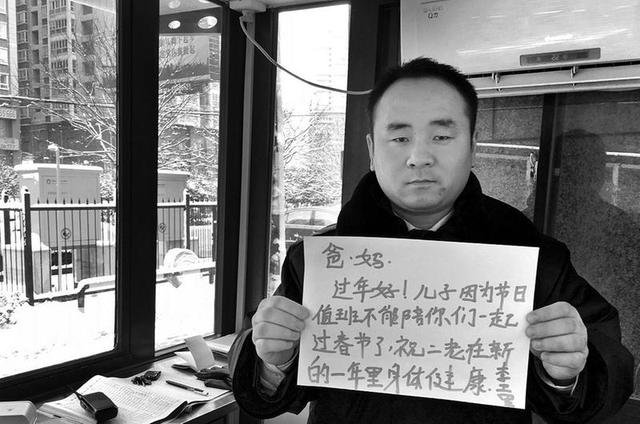 爸·妈·
过年好！儿子因为节日
值班不能陪你们一起
过春节了，祝二老在新
的一年里身体健康